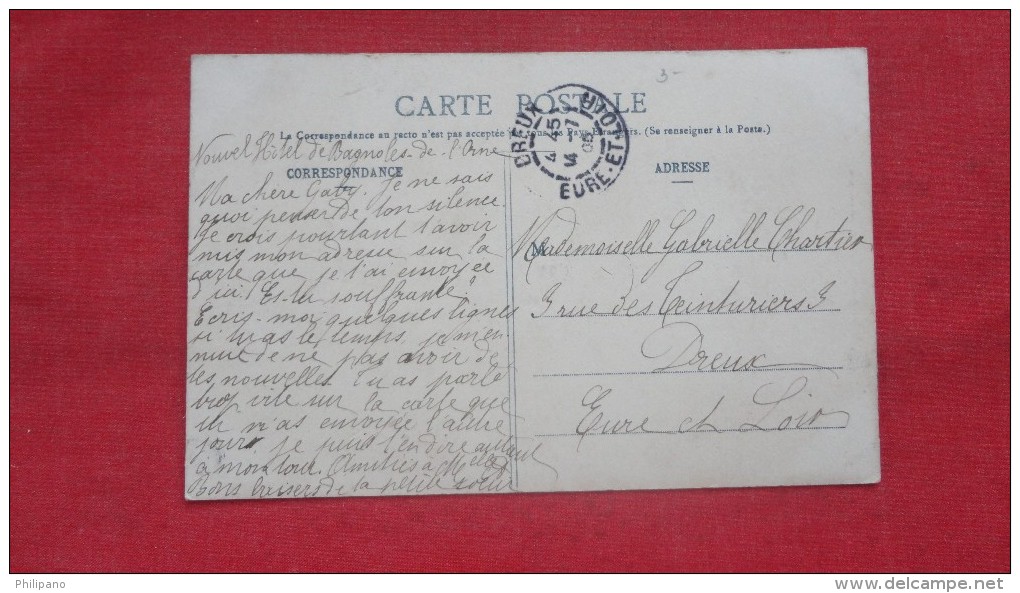 3-
CARTE POSTALE
La Correspondance au recto n'est pas acceptée par tous les Pays Etrangers. (Se renseigner à la Poste.)
DREUX
4 45
4 -7
05
EURE-ET-LOIR
Nouvel Hôtel de Bagnoles-de-l'Orne
CORRESPONDANCE
Ma chère Gaby. Je ne sais
quoi penser de ton silence
je crois pourtant t'avoir
mis mon adresse sur la
carte que je t'ai envoyée
d'ici. Es-tu souffrante?
Ecris-moi quelques lignes
si tu as le temps, je m'en-
nuie de ne pas avoir de
tes nouvelles. Tu as parlé
trop vite sur la carte que
tu m'as envoyée l'autre
jour, je puis t'en dire autant
à mon tour. Amitiés à
Bons baisers de la petite soeur
ADRESSE
M
Mademoiselle Gabrielle Chartier
3 rue des Teinturiers 3
Dreux
Eure et Loir
Philipano
www.delcampe.net